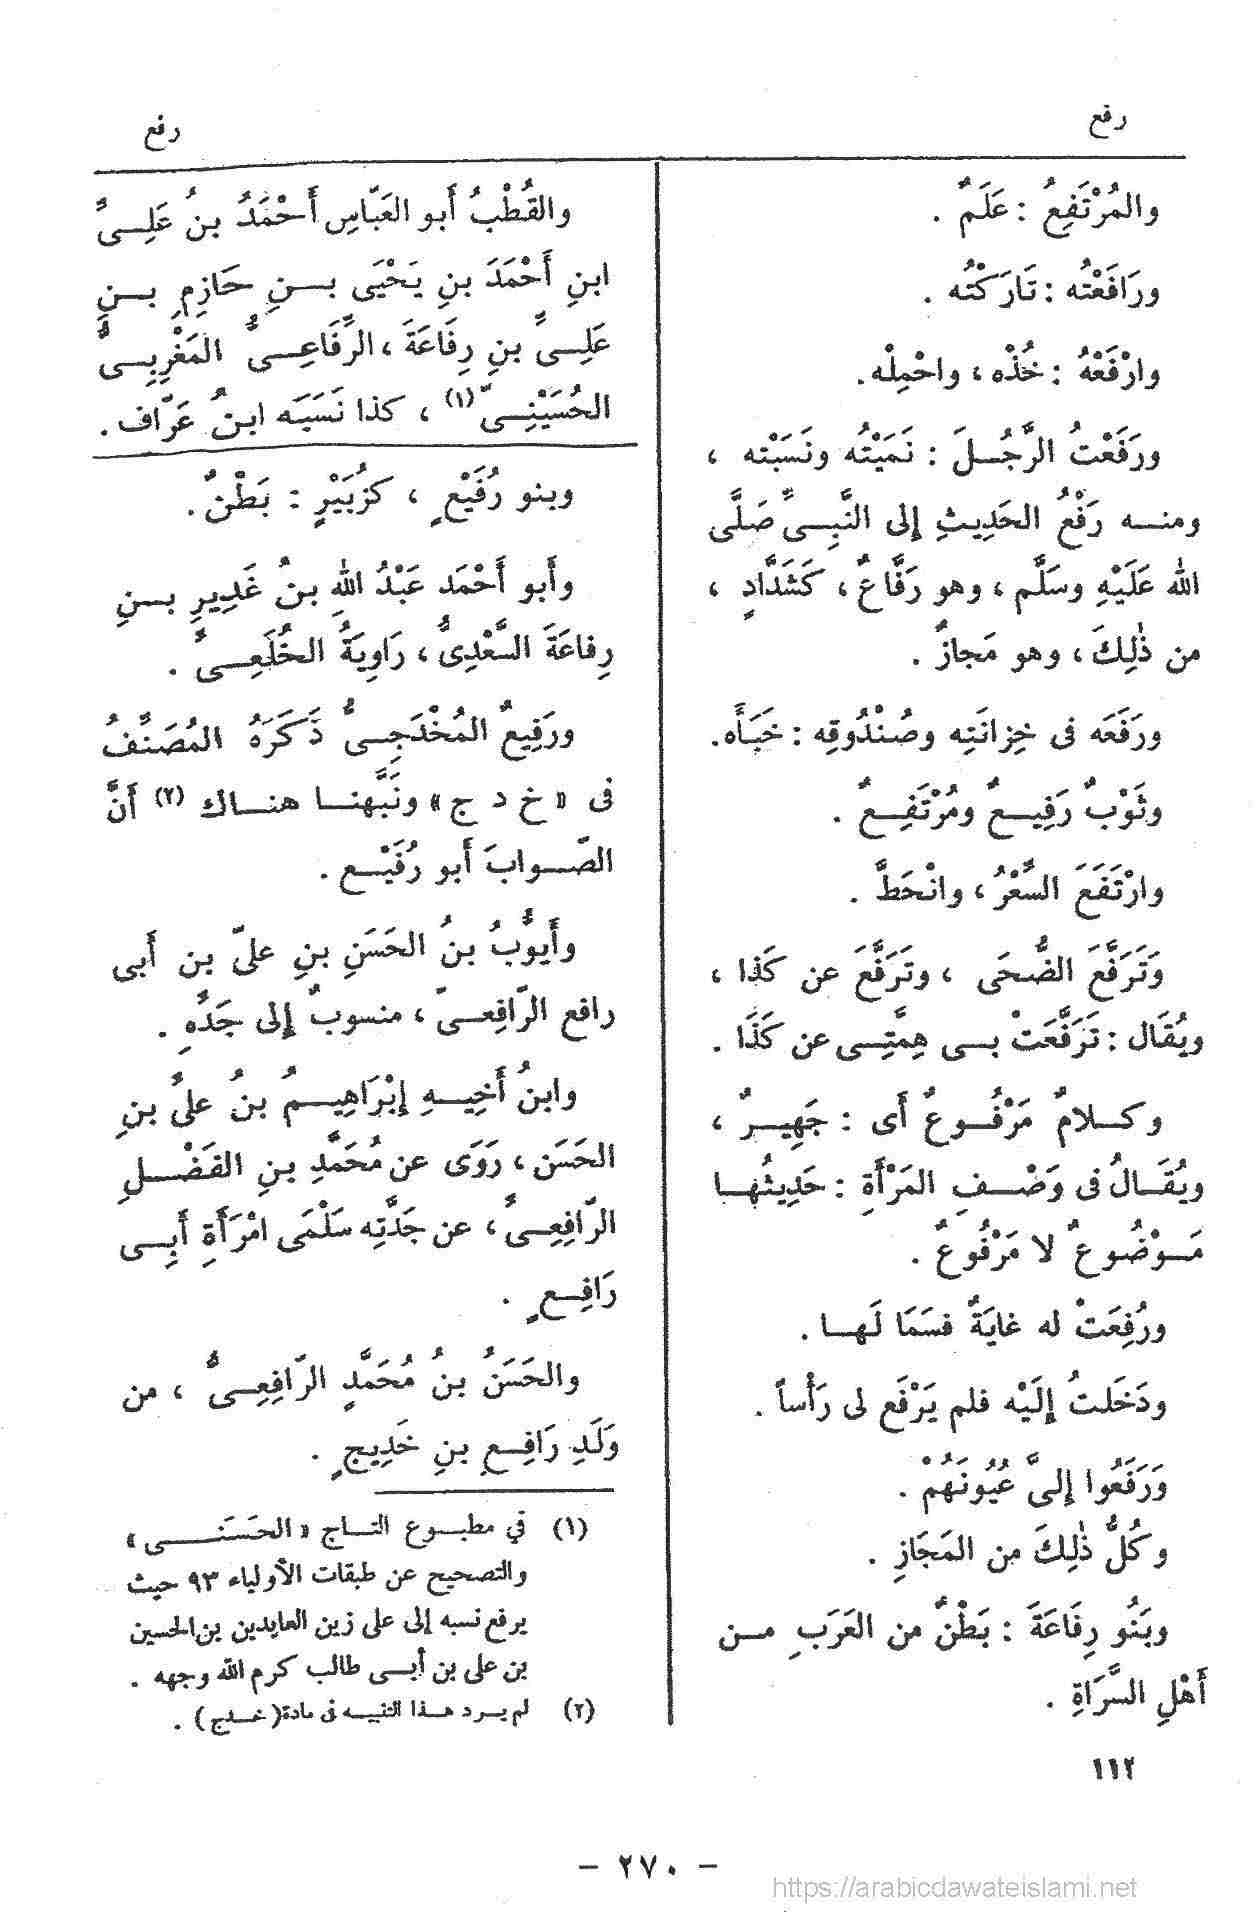 رفع
رفع
والمُرْتَفِعُ : عَلَمٌ .
ورَافَعْتُه : تَارَكْتُه .
وارْفَعْهُ : خُذْه ، واحْمِلْه .
ورَفَعْتُ الرَّجُــلَ : نَمَيْتُه ونَسَبْته ،
ومنــه رَفْعُ الحَدِيثِ إلى النَّبِــىِّ صَلَّى
الله عَلَيْهِ وسَلَّم ، وهو رَفَّاعٌ ، كَشَدَّادٍ ،
من ذٰلِكَ ، وهو مَجازٌ .
ورَفَعَه فى خِزانَتِه وصُنْدُوقِه : خَبَأَه .
وثَوْبٌ رَفِيــعٌ ومُرْتَفِــعٌ .
وارْتَفَعَ السِّعْرُ ، وانْحَطَّ .
وَتَرَفَّعَ الضُّحَى ، وتَرَفَّعَ عن كَذا ،
ويُقَال : تَرَفَّعَتْ بــى هِمَّتِــى عن كَذَا .
وكــلامٌ مَرْفُــوعٌ أَى : جَهِيــرٌ ،
ويُقَــالُ فى وَصْــفِ المَرْأَةِ : حَدِيثُهــا
مَــوْضُوعٌ لا مَرْفُوعٌ .
ورُفِعَتْ له غايَةٌ فسَمَا لَهــا .
ودَخَلتُ إلَيْه فلم يَرْفَع لى رَأْساً .
وَرَفَعُوا إلىَّ عُيُونَهُمْ .
وكُلُّ ذٰلِكَ من المَجَازِ .
وبَنُو رِفَاعَةَ : بَطْنٌ من العَرَبِ مــن
أَهْلِ السَّرَاةِ .
١١٢
والقُطْبُ أَبو العَبّاسِ أَحْمَدُ بنُ عَلِــىِّ
ابنِ أَحْمَدَ بنِ يَحْيَى بــنِ حَازِمِ بــنِ
عَلِــىِّ بنِ رِفَاعَةَ ، الرِّفَاعِــىُّ المَغْرِبِــىُّ
الحُسَيْنِــىّ (١) ، كذا نَسَبَه ابنُ عَرّاف .
وبنو رُفَيْعٍ ، كزُبَيْرٍ : بَطْنٌ .
وأَبو أَحْمَد عَبْدُ اللهِ بنُ غَدِيرِ بــنِ
رِفاعَةَ السَّعْدِىُّ ، رَاوِيَةُ الخُلَعِــىِّ .
ورَفِيعٌ المُخْدَجِــىُّ ذَكَرَهُ المُصَنِّفُ
فى « خ د ج » ونَبَّهنــا هنــاك (٢) أَنَّ
الصّــوابَ أَبو رُفَيْــع .
وأَيوُّبُ بنُ الحَسَنِ بنِ علىّ بن أَبى
رافع الرّافِعــىّ ، منسوبٌ إلى جَدِّهِ .
وابنُ أَخِيــهِ إبْرَاهِيــمُ بنُ علىِّ بنِ
الحَسَن ، رَوَى عن مُحَمَّدِ بنِ الفَضْــلِ
الرّافِعِــىِّ ، عن جَدَّتِه سَلْمَى امْرَأَةِ أَبِــى
رَافِــعٍ .
والحَسَنُ بنُ مُحَمَّدٍ الرّافِعِــىُّ ، من
وَلَدِ رَافِــعِ بنِ خَدِيجٍ .
(١) في مطبــوع التــاج « الحَسَنــى »
والتصحيح عن طبقات الأولياء ٩٣ حيث
يرفع نسبه إلى على زين العابدين بن الحسين
بن على بن أبــى طالب كرم الله وجهه .
(٢) لم يــرد هــذا التنبيــه فى مادة ( خــدج ) .
– ٢٧٠ –
https://arabicdawateislami.net